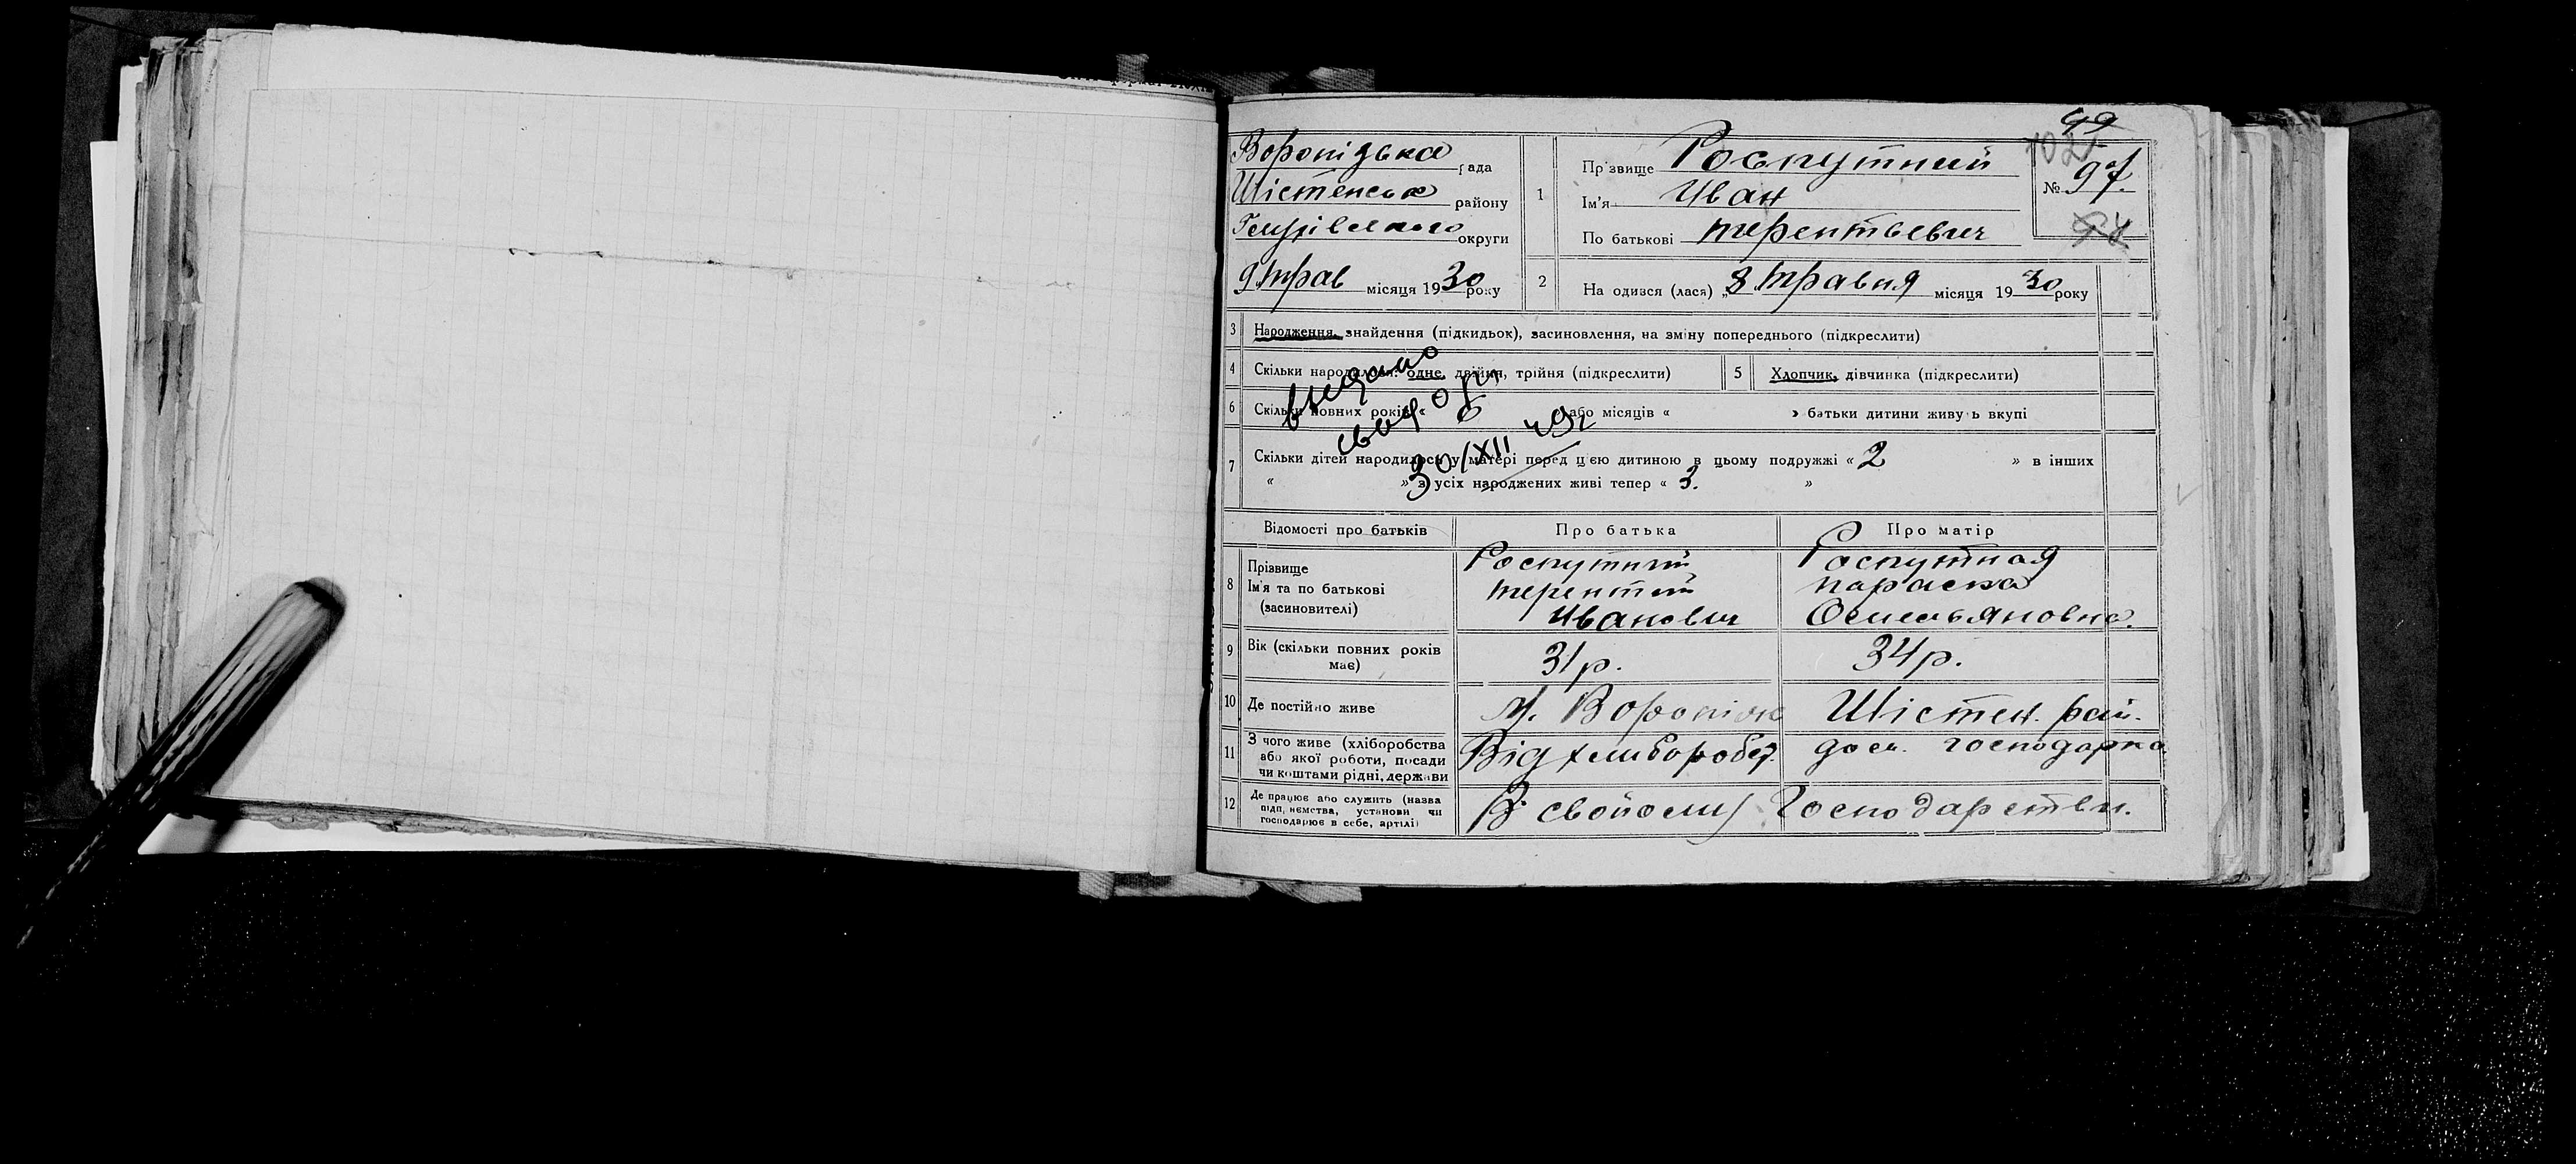 99
1025
Воропізька рада
Шістенськ району
округи
9 трав місяця 1930 року
1 Прізвище Роспутний
Ім'я Иван
По батькові терентьевич
№ 97.
2 На одився (лася) „8 травня місяця 1930 року
3 Народження, знайдення (підкидьок), засиновлення, на зміну попереднього (підкреслити)
4 Скільки народилося: одне, двійня, трійня (підкреслити)
5 Хлопчик, дівчинка (підкреслити)
6 Скільки повних років « 6 або місяців « » батьки дитини живуть вкупі
7 Скільки дітей народилось у матері перед цією дитиною в цьому подружжі « 2 » в інших
« » з усіх народжених живі тепер « 3. »
выдано
свид о рж
30/XII 49г
Відомості про батьків Про батька Про матір
8 Прізвище
Ім'я та по батькові
(засиновителі)
Роспутний
терентий
Иванович
Роспутная
параска
Омельяновна.
9 Вік (скільки повних років
має)
31 р. 34 р.
10 Де постійно живе М. Воропіж Шістен. рай.
11 З чого живе (хліборобства
або якої роботи, посади
чи коштами рідні, держави
Від хлиборобст. дом. господарка
12 Де працює або служить (назва
підприємства, установи чи
господарює в себе, артілі)
В свойому Господарстви.